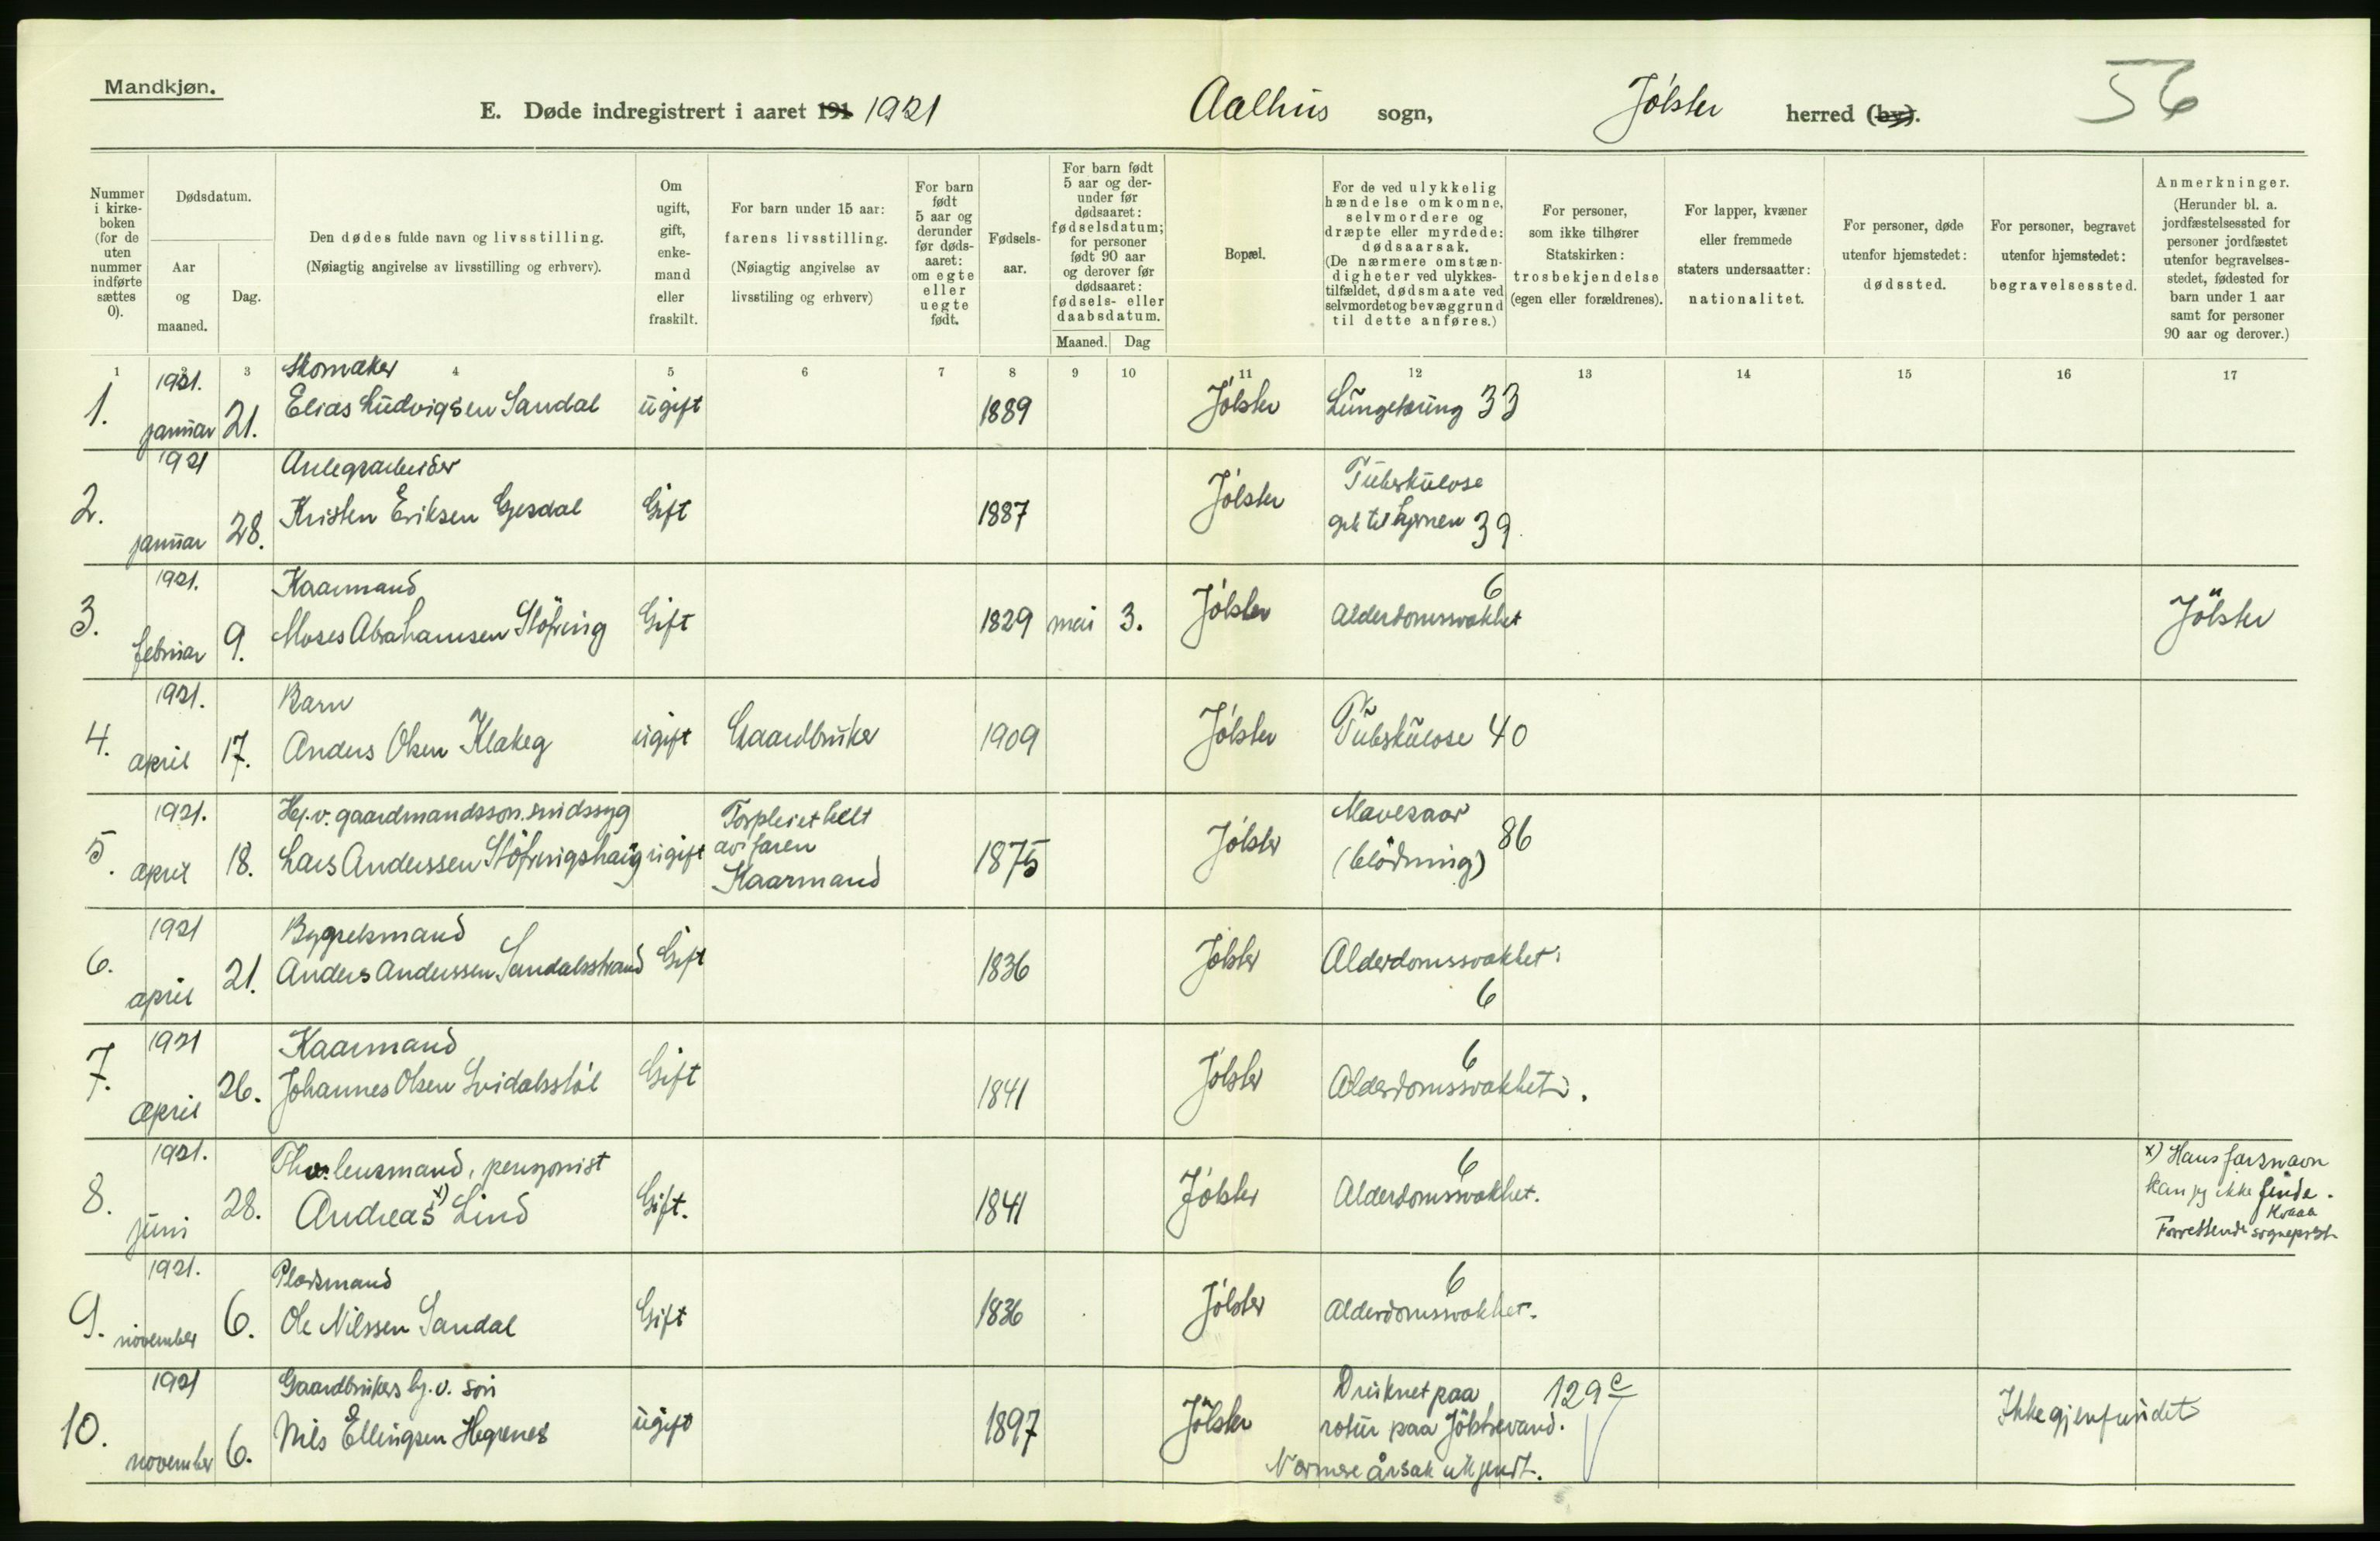 Mandkjøn.
E. Døde indregistrert i aaret 191 1921 Aalhus sogn, Jölster herred (by). 56
Nummer i kirkeboken (for de uten nummer indførte sættes 0).
Dødsdatum.
Aar og maaned.
Dag.
Den dødes fulde navn og livsstilling.
(Nøiagtig angivelse av livsstilling og erhverv).
Om ugift, gift, enkemand eller fraskilt.
For barn under 15 aar: farens livsstilling.
(Nøiagtig angivelse av livsstiling og erhverv)
For barn født 5 aar og derunder før dødsaaret: om egte eller uegte født.
Fødselsaar.
For barn født 5 aar og derunder før dødsaaret: fødselsdatum; for personer født 90 aar og derover før dødsaaret: fødsels- eller daabsdatum.
Maaned. Dag
Bopæl.
For de ved ulykkelig hændelse omkomne, selvmordere og dræpte eller myrdede: dødsaarsak.
(De nærmere omstændigheter ved ulykkestilfældet, dødsmaate ved selvmordet og bevæggrund til dette anføres.)
For personer, som ikke tilhører Statskirken: trosbekjendelse (egen eller forældrenes).
For lapper, kvæner eller fremmede staters undersaatter: nationalitet.
For personer, døde utenfor hjemstedet: dødssted.
For personer, begravet utenfor hjemstedet: begravelsessted.
Anmerkninger.
(Herunder bl. a. jordfæstelsessted for personer jordfæstet utenfor begravelsesstedet, fødested for barn under 1 aar samt for personer 90 aar og derover.)
1 3 4 5 6 7 8 9 10 11 12 13 14 15 16 17
1921. Skomaker
1. januar 21. Elias Ludvigsen Sandal ugift 1889 Jölster Lungetæring 33
1921 Anlegsarbeider
2. januar 28. Kristen Eriksen Gjesdal Gift 1887 Jölster Tuberkulose
gik til hjernen 39
1921. Kaarmand
3. februar 9. Moses Abrahamsen Stöfring Gift 1829 mai 3. Jölster Alderdomssvakhet 6 Jölster
1921. Barn
4. april 17. Anders Olsen Klakeg ugift Gaardbruker 1909 Jölster Tuberkulose 40
1921. Hj.v. gaardmandsson. sindssyg
5. april 18. Lars Anderssen Stöfringshaug ugift Forpleiet helt
av faren
Kaarmand 1875 Jölster Mavesaar
(blödning) 86
1921 Bygselsmand
6. april 21. Anders Anderssen Sandalsstrand Gift 1836 Jölster Alderdomssvakhet.
6
1921 Kaarmand
7. april 26. Johannes Olsen Svidalsstöl Gift 1841 Jölster Alderdomssvakhet. 6
1921. lensmand, pensjonist
8. juni 28. Andreas x) Lind Gift. 1841 Jölster Alderdomssvakhet. 6
x) Hans farsnavn
kan jeg ikke finde.
Kvaal
Forrettende sogneprest
1921. Pladsmand
9. november 6. Ole Nilssen Sandal Gift 1836 Jölster Alderdomssvakhet. 6
1921 Gaardbrukers hj.v. sön
10. november 6. Nils Ellingsen Hegrenes ugift 1897 Jölster Druknet paa 129 c
rotur paa Jölstervand.
Nærmere årsak ukjendt.
Ikke gjenfundet